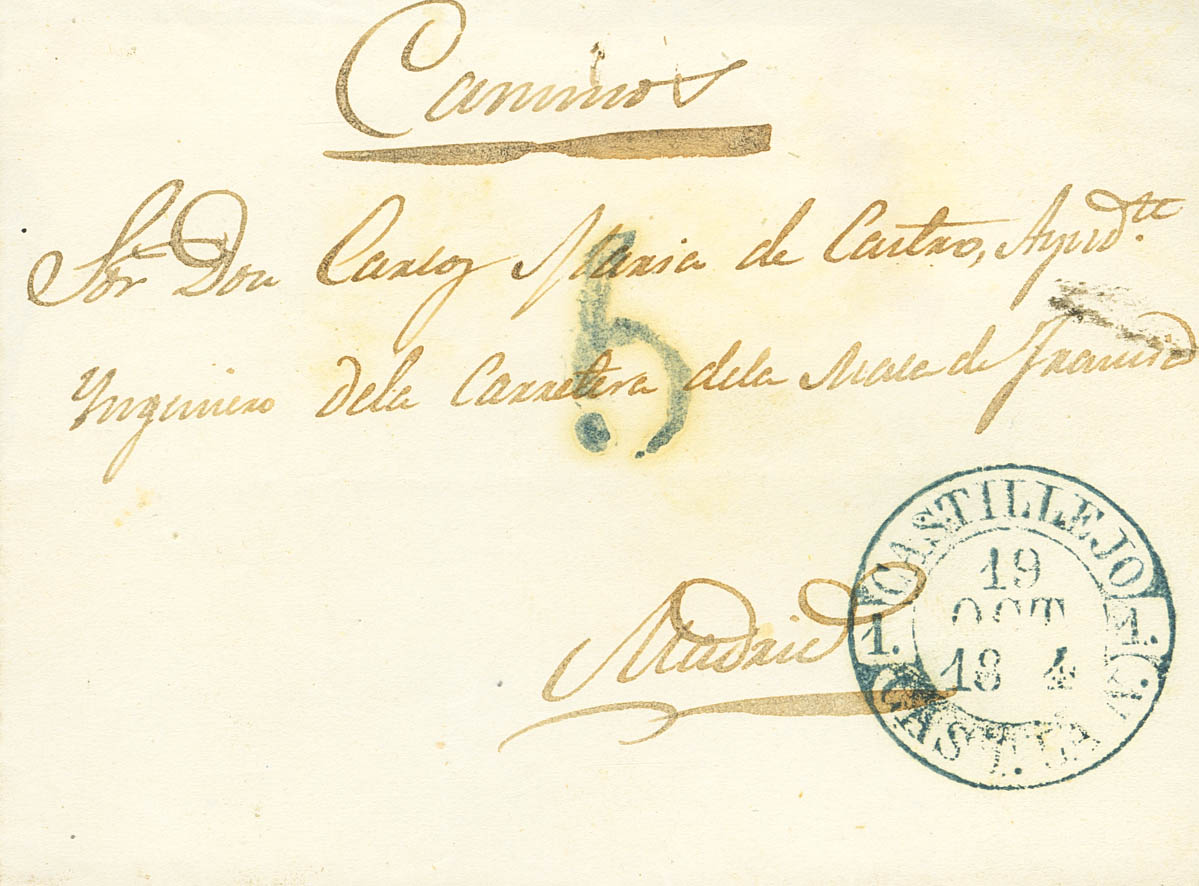 Caminos
Sor. Don Carlos Maria de Castro, Ayud.te
Yngeniero dela Carretera dela Mala de Francia
5
Madrid
CASTILLEJO
19
OCT
18 4
1. 1.
CAST. LA